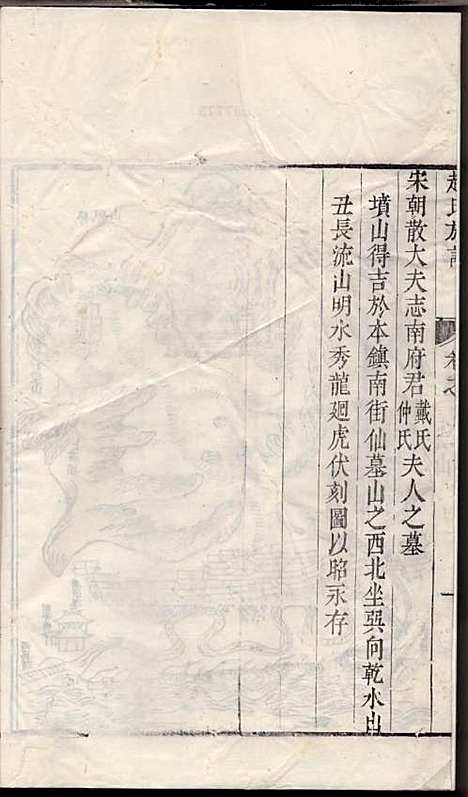 趙氏族譜
卷之
一
宋朝散大夫志南府君戴氏仲氏夫人之墓
墳山得吉於本鎮南街仙墓山之西北坐巽向乾水出
丑長流山明水秀龍廻虎伏刻圖以昭永存